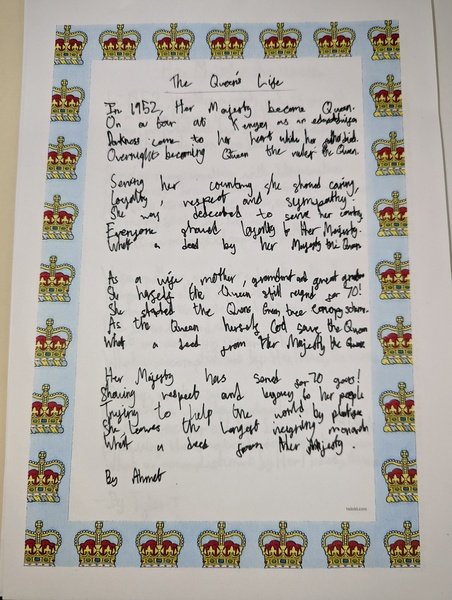 The Queen's Life
In 1952, Her Majesty become Queen.
On a tour at Kenya as an
Darkness came to her heart while her father died.
Overnights becoming Queen the ruler the Queen.
Serving her country she showed caring,
Loyalty, respect and sympathy.
She was dedecated to serve her country
Everyone showed loyalty to Her Majesty.
What a deed by her Majesty the Queen
As a wife mother, grandma and great grandma
She herself the Queen still reigned for 70!
She started the Queens Green tree canopy scheme.
As the Queen herself God save the Queen
What a deed from Her Majesty the Queen
Her Majesty has served for 70 years!
Showing respect and legacy to her people
Trying to help the world by
She leaves the longest reigning monarch
What a deed from Her Majesty.
By Ahmet
twinkl.com